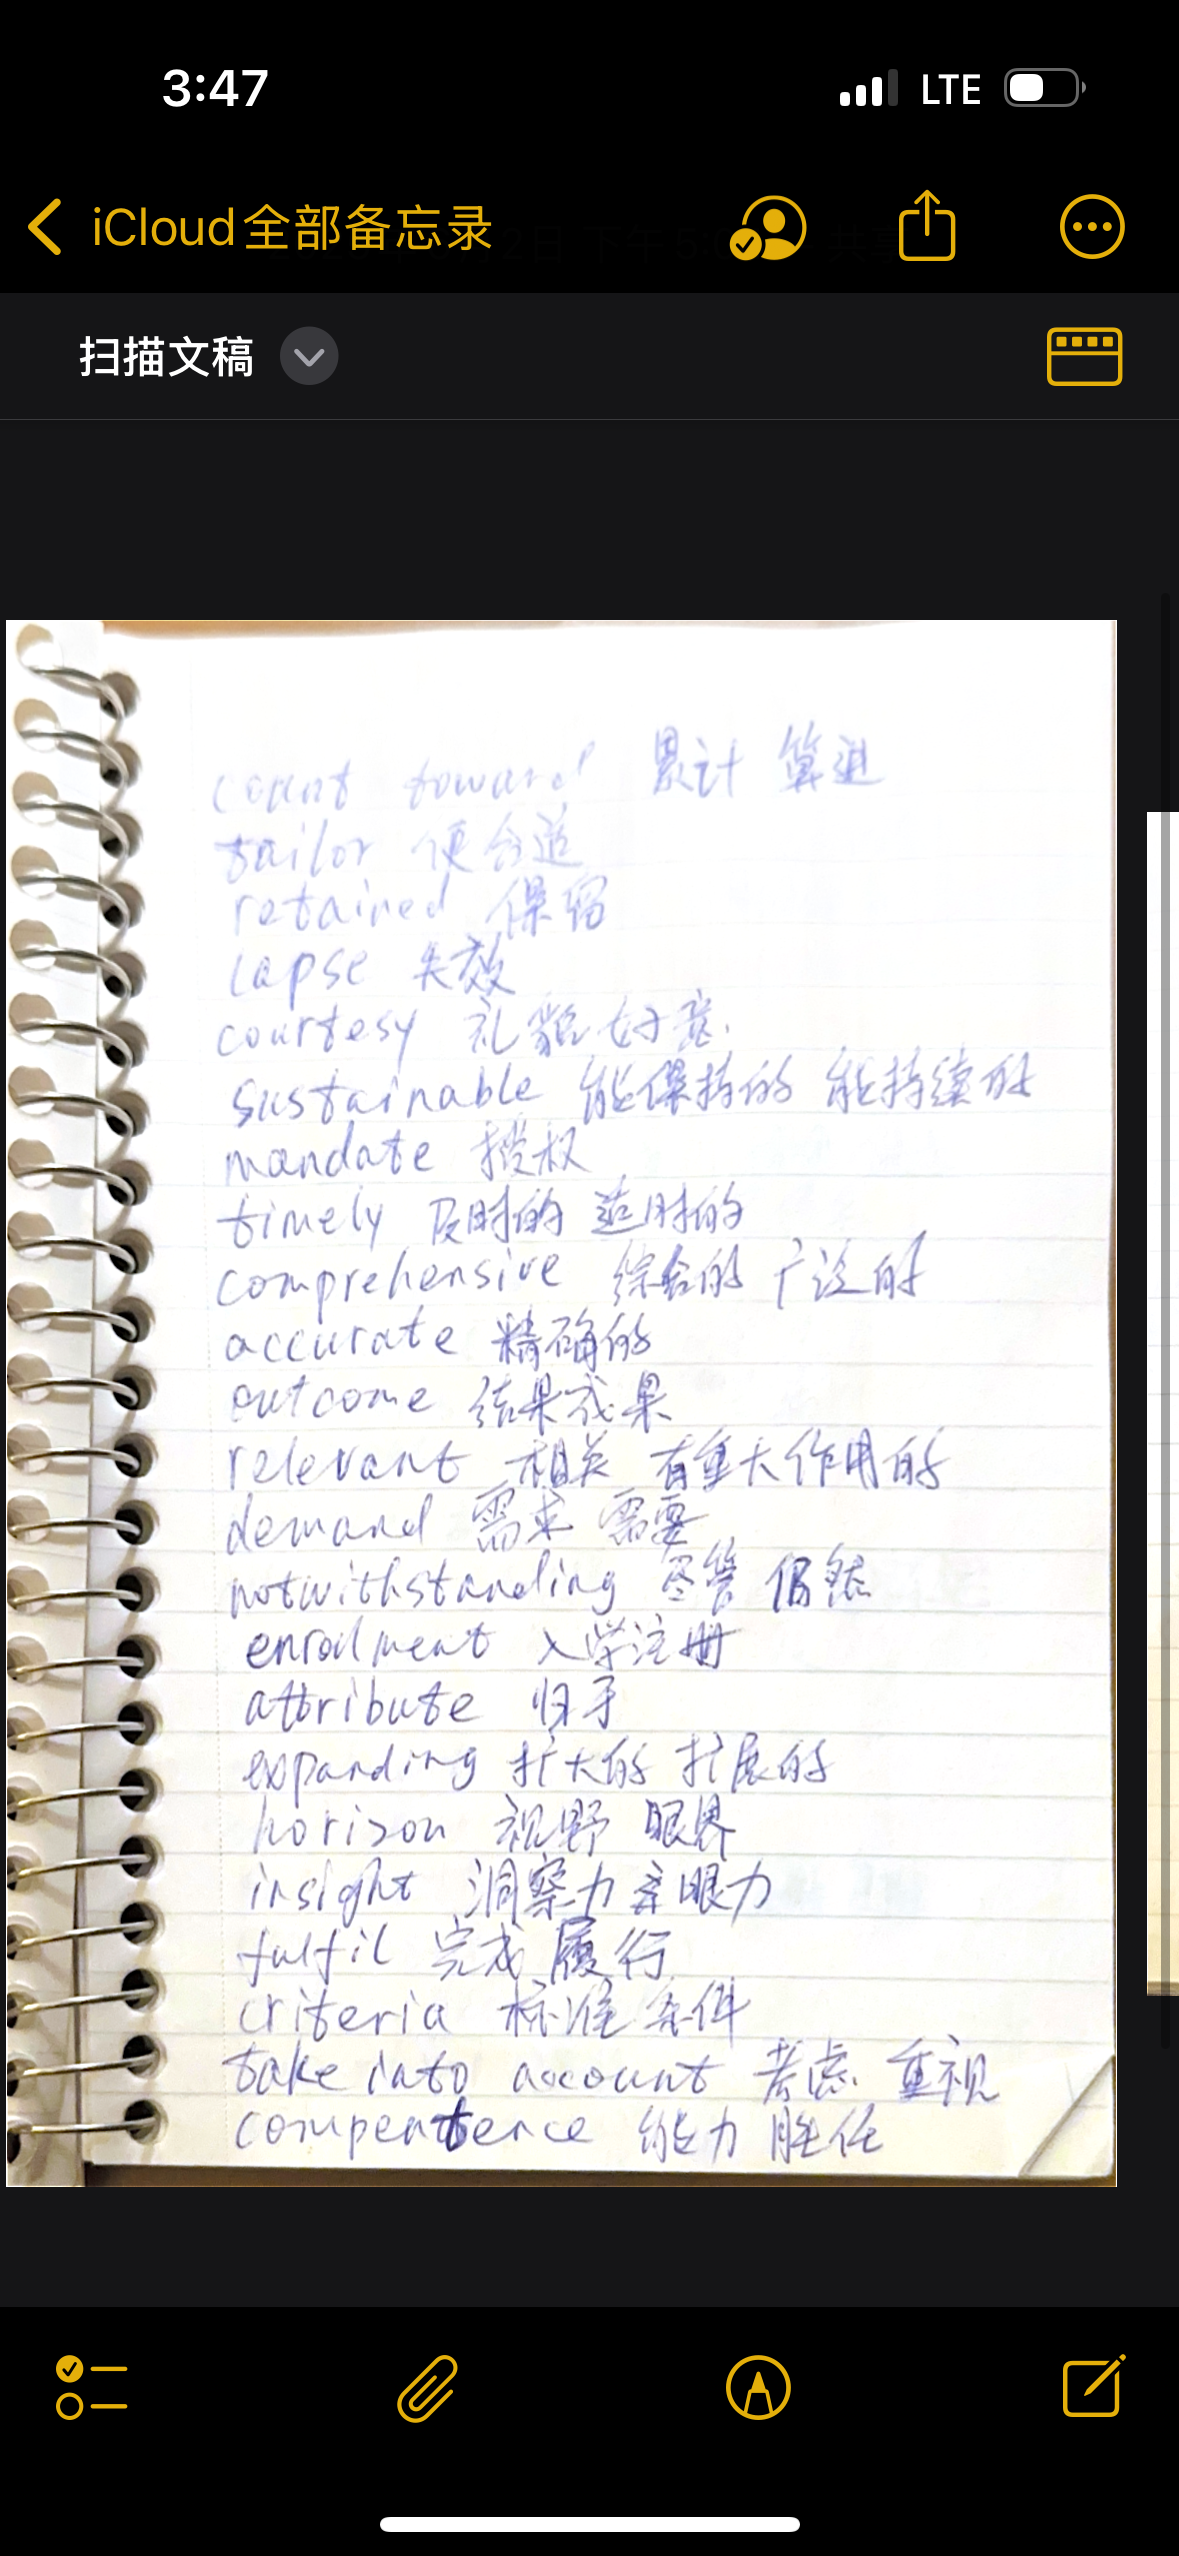 3:47 LTE
iCloud全部备忘录
扫描文稿
count toward 累计 算进
tailor 使合适
retained 保留
lapse 失效
courtesy 礼貌 好意.
sustainable 能保持的 能持续的
mandate 授权
timely 及时的 适时的
comprehensive 综合的 广泛的
accurate 精确的
outcome 结果成果
relevant 相关 有重大作用的
demand 需求 需要
notwithstanding 尽管 仍然
enrollment 入学注册
attribute 归于
expanding 扩大的 扩展的
horison 视野 眼界
insight 洞察力 亲眼力
fulfil 完成 履行
criteria 标准 条件
take into account 考虑 重视
compentence 能力 胜任